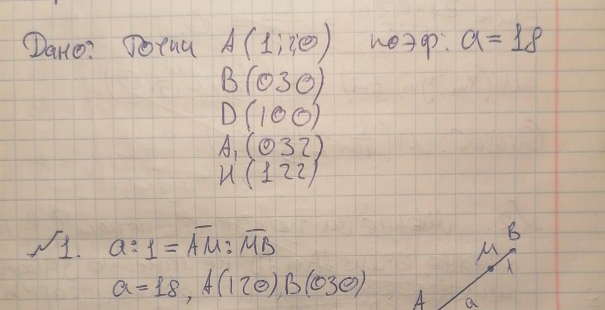 Дано: Точки A(1;2;0) коэф: a=18
B(030)
D(100)
A₁(032)
H(122)
№1. a:1=A̅M̅:M̅B̅
a=18, A(120) B(030)
B
M
1
A
a